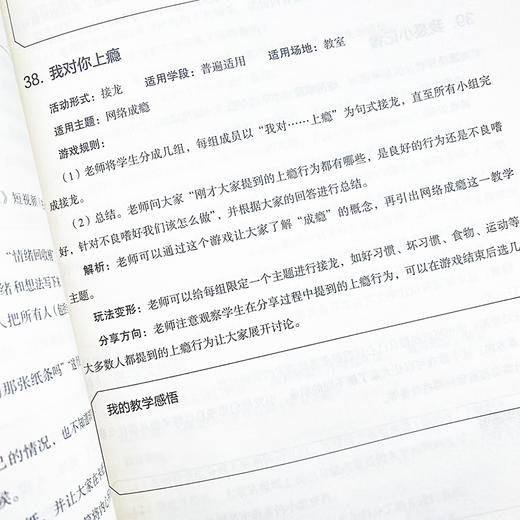 38. 我对你上瘾
活动形式：接龙 适用学段：普遍适用 适用场地：教室
适用主题：网络成瘾
游戏规则：
（1）老师将学生分成几组，每组成员以“我对……上瘾”为句式接龙，直至所有小组完
成接龙。
（2）总结。老师问大家“刚才大家提到的上瘾行为都有哪些，是良好的行为还是不良嗜
好，针对不良嗜好我们该怎么做”，并根据大家的回答进行总结。
解析：老师可以通过这个游戏让大家了解“成瘾”的概念，再引出网络成瘾这一教学
主题。
玩法变形：老师可以给每组限定一个主题进行接龙，如好习惯、坏习惯、食物、运动等
分享方向：老师注意观察学生在分享过程中提到的上瘾行为，可以在游戏结束后选几
大多数人都提到的上瘾行为让大家展开讨论。
我的教学感悟
》短视频
“情绪回收
绪和想法写下
人把所有人
那张纸条吗”
己的情况，也不知道
候。
纸，并让大家在